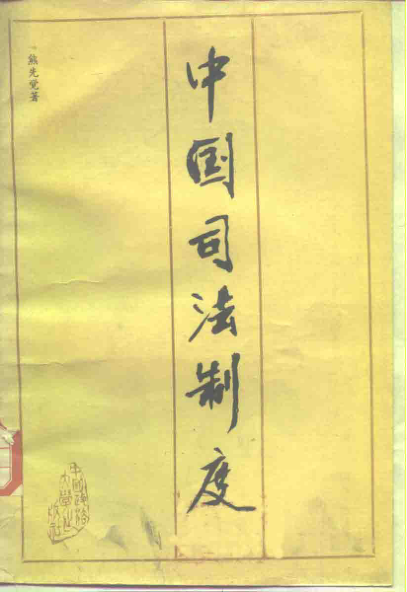 熊先觉著
中国司法制度
中国政法
大学出
版社